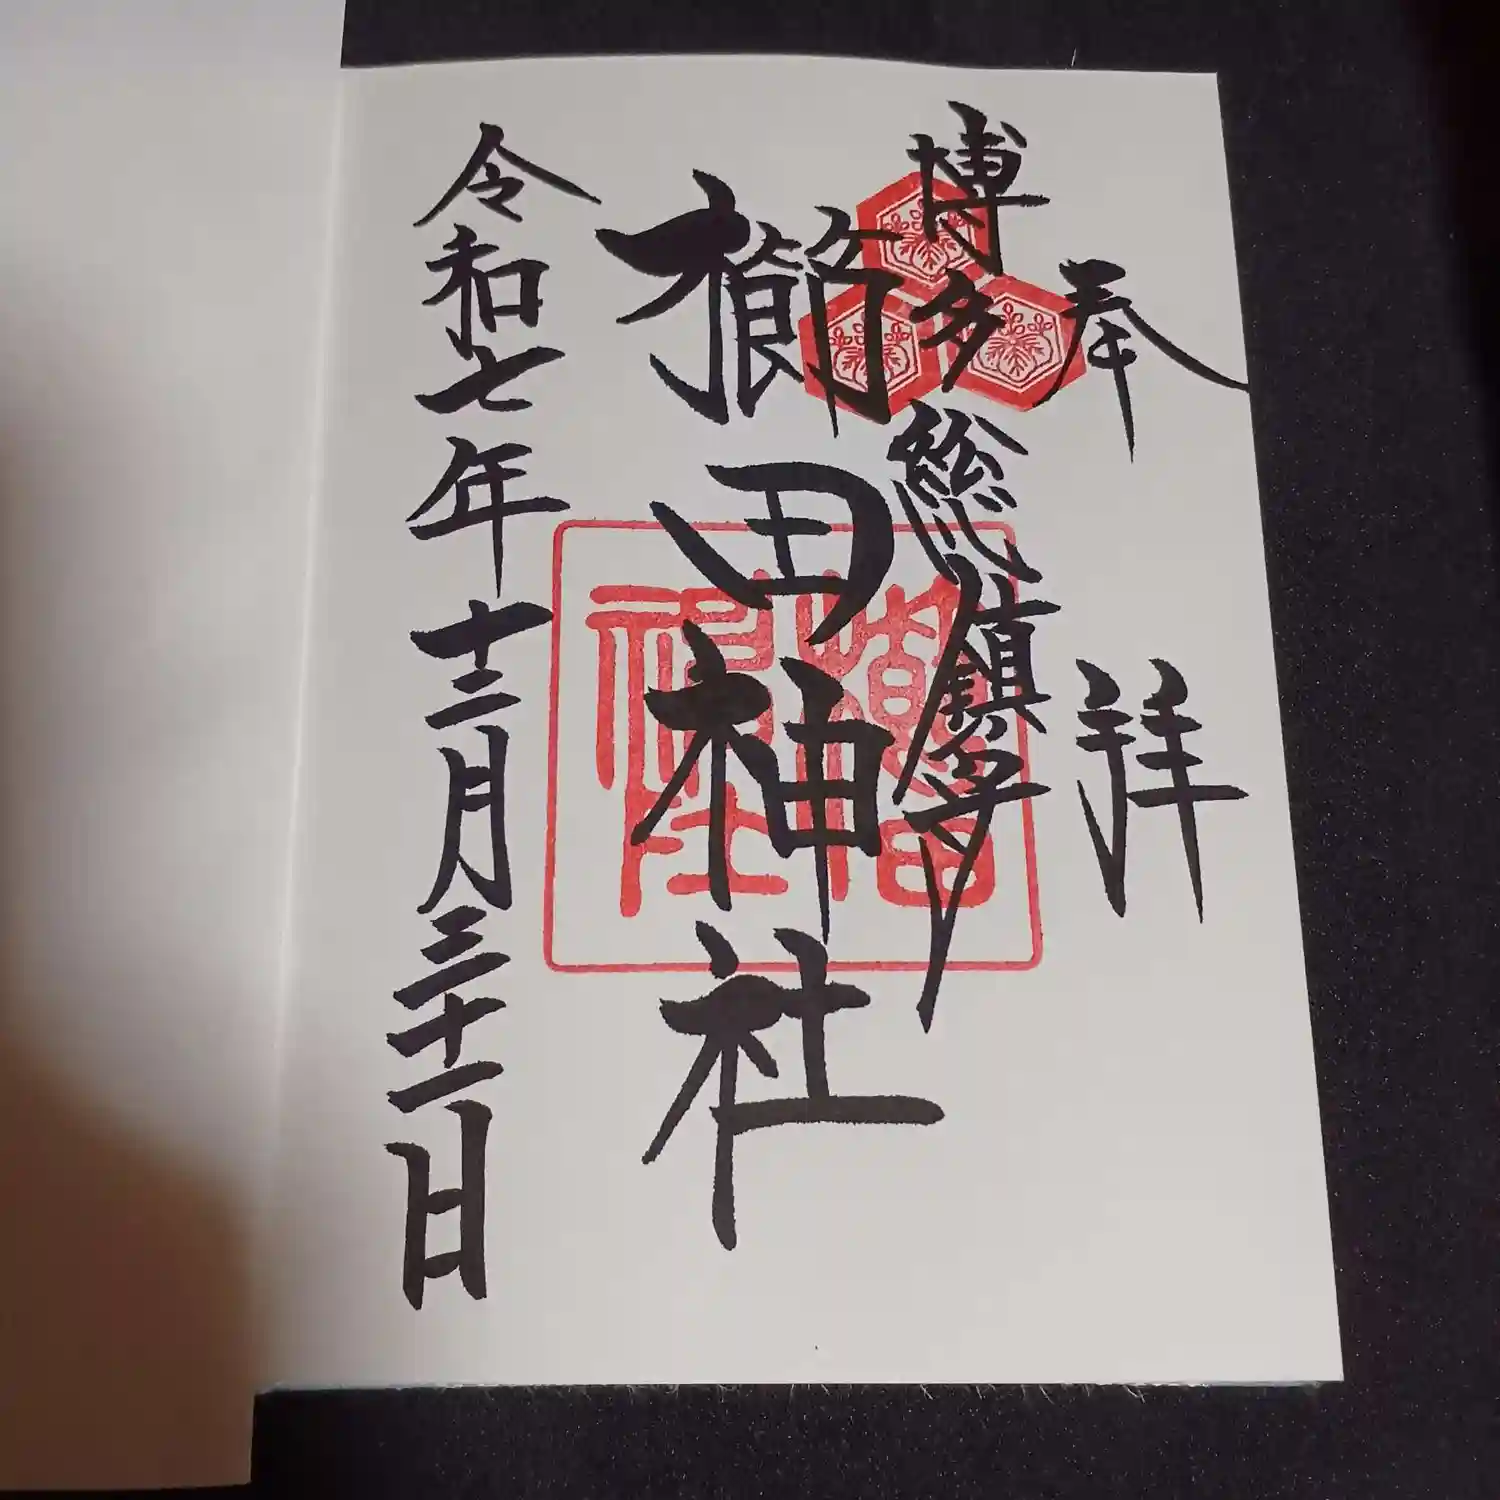 奉拝
博多総鎮守
櫛田神社
令和七年十二月三十一日
櫛田
神社